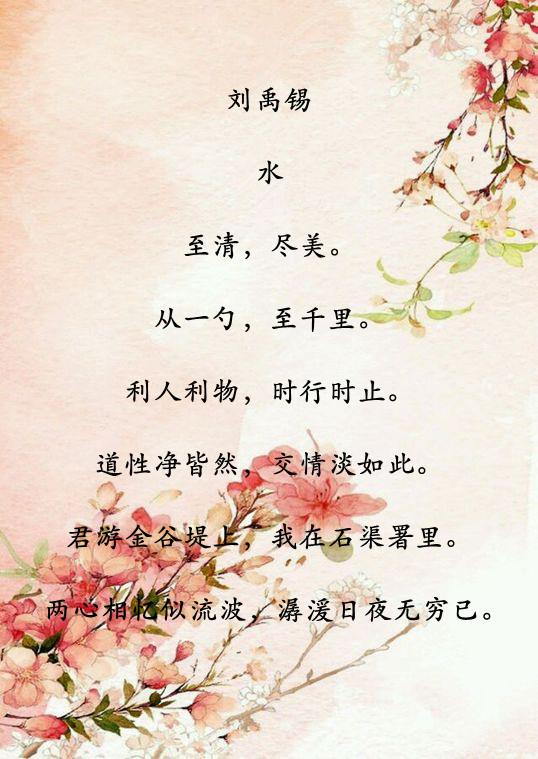 刘禹锡
水
至清，尽美。
从一勺，至千里。
利人利物，时行时止。
道性净皆然，交情淡如此。
君游金谷堤上，我在石渠署里。
两心相忆似流波，潺湲日夜无穷已。